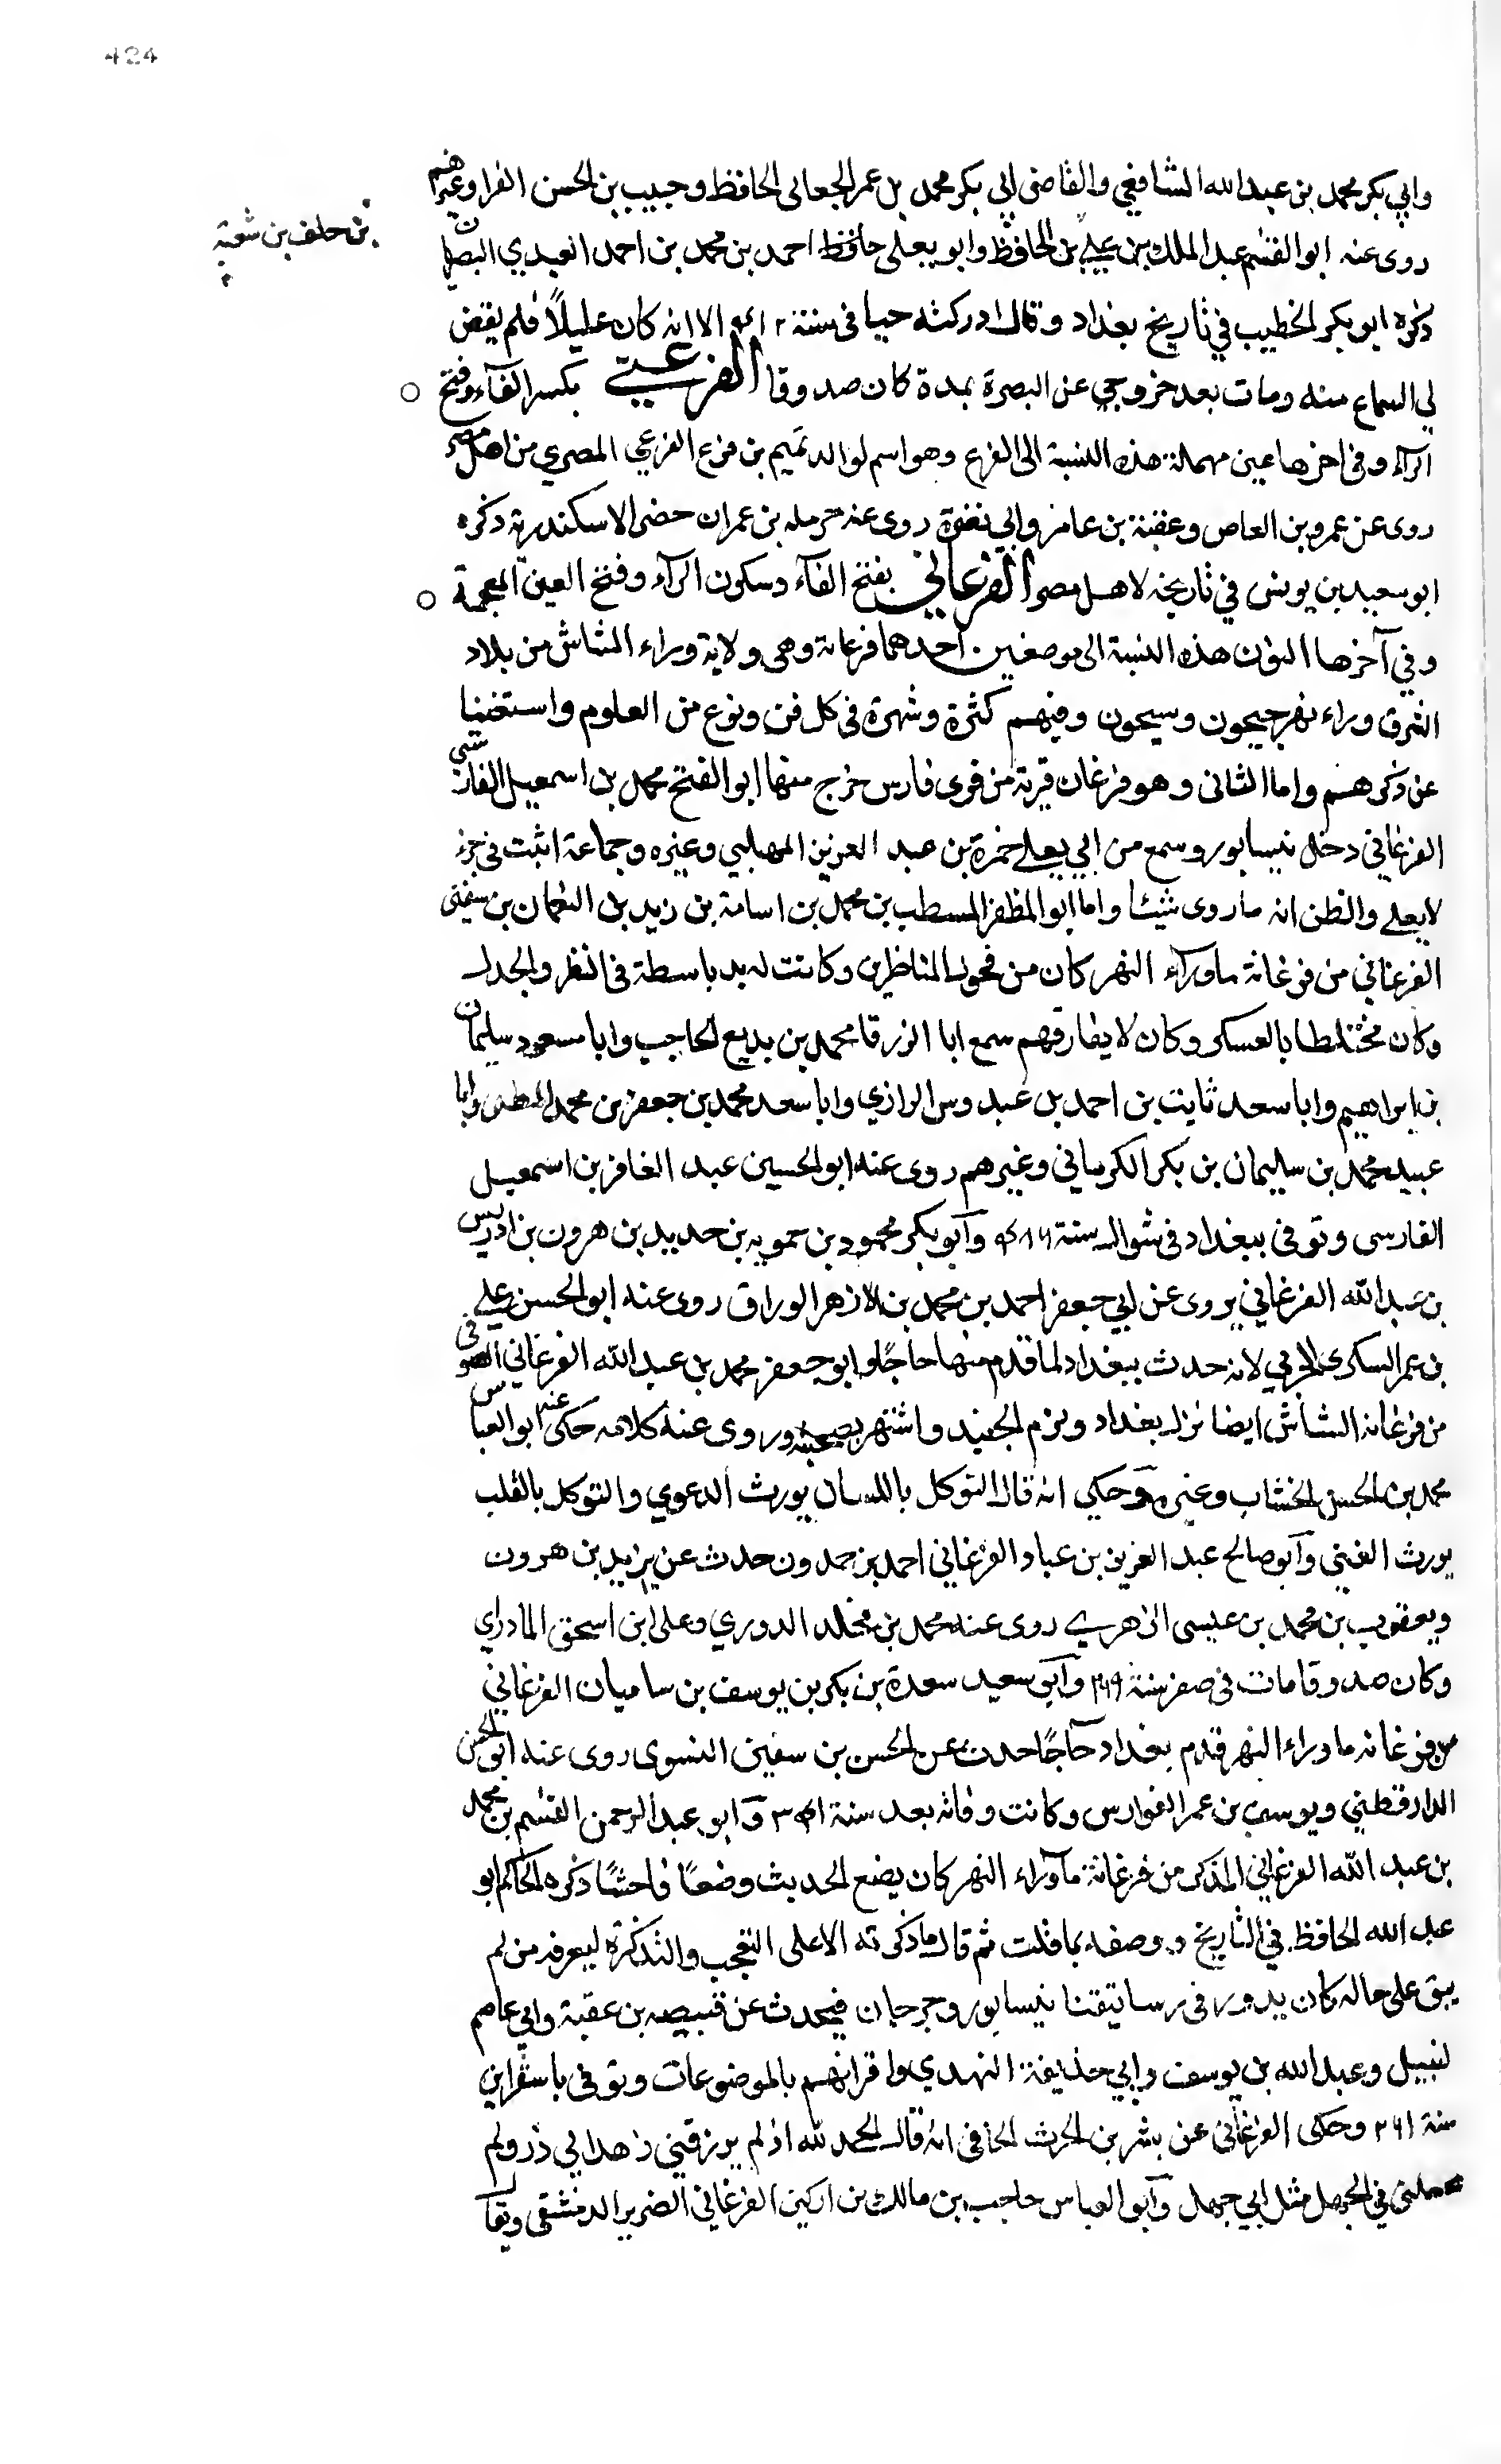 424
وابي بكر محمد بن عبد الله الشافعي والقاضي ابي بكر محمد بن عمر الجعابي الحافظ وحبيب بن الحسن القزاز وغيرهم
بن خلف بن شعبة
روى عنه ابو القسم عبد الملك بن علي بن الحافظ وابو يعلى حافظ احمد بن محمد بن احمد العبدي البصريان
ذكره ابو بكر الخطيب في تاريخ بغداد وقال ادركته حيا في سنة الا انه كان عليلاً فلم يقض
لي السماع منه ومات بعد خروجي عن البصرة بمدة كان صدوقا الفرعي بكسر الفآء وفتح
الرآء وفي اخرها عين مهملة هذه النسبة الى الفرع وهو اسم لوالد تميم بن فرع الفرعي المصري من اهل مصر
روى عن عمرو بن العاص وعقبة بن عامر وابي روى عنه حرمله بن عمران حضر الاسكندرية ذكره
ابو سعيد بن يونس في تاريخه لاهل مصر الفرغاني بفتح الفآء وسكون الرآء وفتح الغين المعجمة
وفي آخرها النون هذه النسبة الى موضعين احدهما فرغانة وهى ولاية وراء الشاش من بلاد
الشرق وراء نهر جيحون وسيحون وفيهم كثرة وشهرة في كل فن ونوع من العلوم واستغنينا
عن ذكرهم واما الثانى وهو فرغان قرية من قرى فارس خرج منها ابو الفتح محمد بن اسمعيل الفارسي
الفرغاني دخل نيسابور وسمع من ابي يعلى حمزة بن عبد العزيز المهلبي وغيره وجماعة اثبت في جزء
لا يعلى والظن انه ما روى شيئاً واما ابو المظفر المسطب بن محمد بن اسامة بن زيد بن النعمان بن سفين
الفرغاني من فرغانة ماورآء النهر كان من فحول المناظرين وكانت له يد باسطة في النظر والجدل
وكان مختلطا بالعسكر وكان لا يفارقهم سمع ابا الزرقا محمد بن بديع الحاجب وابا مسعود سليمان
بن ابراهيم وابا سعد ثابت بن احمد بن عبدوس الرازي وابا سعد محمد بن جعفر بن محمد وابا
عبيد محمد بن سليمان بن بكر الكرماني وغيرهم روى عنه ابو الحسين عبد الغافر بن اسمعيل
الفارسي وتوفى ببغداد في شوال سنة ٤٨٦ وآبو بكر محمود بن حمويه بن حديد بن هرون بن ادريس
بن عبد الله الفرغاني يروى عن ابي جعفر احمد بن محمد بن الازهر الوراق روى عنه ابو الحسن علي
بن عمر السكرى الحرمي لانه حدث ببغداد لما قدم منها حاجًا وابو جعفر محمد بن عبد الله الفرغاني الصوفي
من فرغانة الشاش ايضا نزل بغداد ولزم الجنيد واشتهر بصحبته وروى عنه كلامه حكى عنه ابو العباس
محمد بن الحسن الخشاب وغيره وحكي انه قال التوكل باللسان يورث الدعوي والتوكل بالقلب
يورث الغني وآبو صالح عبد العزيز بن عباد الفرغاني احمد بن حمدون حدث عن يزيد بن هرون
ويعقوب بن محمد بن عيسى الزهري روى عنه محمد بن مخلد الدوري وعلى ابن اسحق المادراي
وكان صدوقا مات في صفر سنة ٢٦٩ وآبو سعيد سعدة بن بكر بن يوسف بن ساميان الفرغاني
من فرغانة ما وراء النهر قدم بغداد حآجًا حدث عن الحسن بن سفين النسوى روى عنه ابو الحسن
الدارقطني ويوسف بن عمر القواس وكانت وفاته بعد سنة ٣٤١ وآبو عبد الرحمن القسم بن محمد
بن عبد الله الفرغاني المذكر من فرغانة مآوراء النهر كان يضع الحديث وضعًا فاحشًا ذكره الحاكم ابو
عبد الله الحافظ في التاريخ ووصفه بما قلت ثم قال ما ذكرته الا على التعجب والتذكرة ليعرفه من لم
يقف على حاله كان يدور في رساتيقنا نيسابور وجرجان فيحدث عن قبيصه بن عقبة وابي عاصم
لنبيل وعبد الله بن يوسف وابي حذيفة النهدي واقرانهم بالموضوعات وتوفى باسفراين
سنة ٢٦١ وحكى الفرغاني عن بشر بن الحرث الحافى انه قال الحمد لله اذ لم يرزقني زهد ابي ذر ولم
يجعلني في الجهل مثل ابي جهل وآبو العباس حاجب بن مالك بن اركين الفرغاني الضرير الدمشقي ويقال